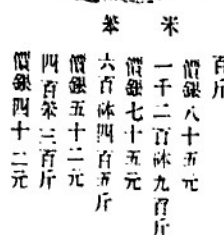 米笨
百斤
價銀八十五元
一千二百砵九百斤
價銀七十五元
六百砵四百五斤
價銀五十二元
四百笨三百斤
價銀四十二元